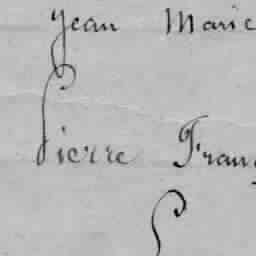 Jean Marie
Pierre Fran